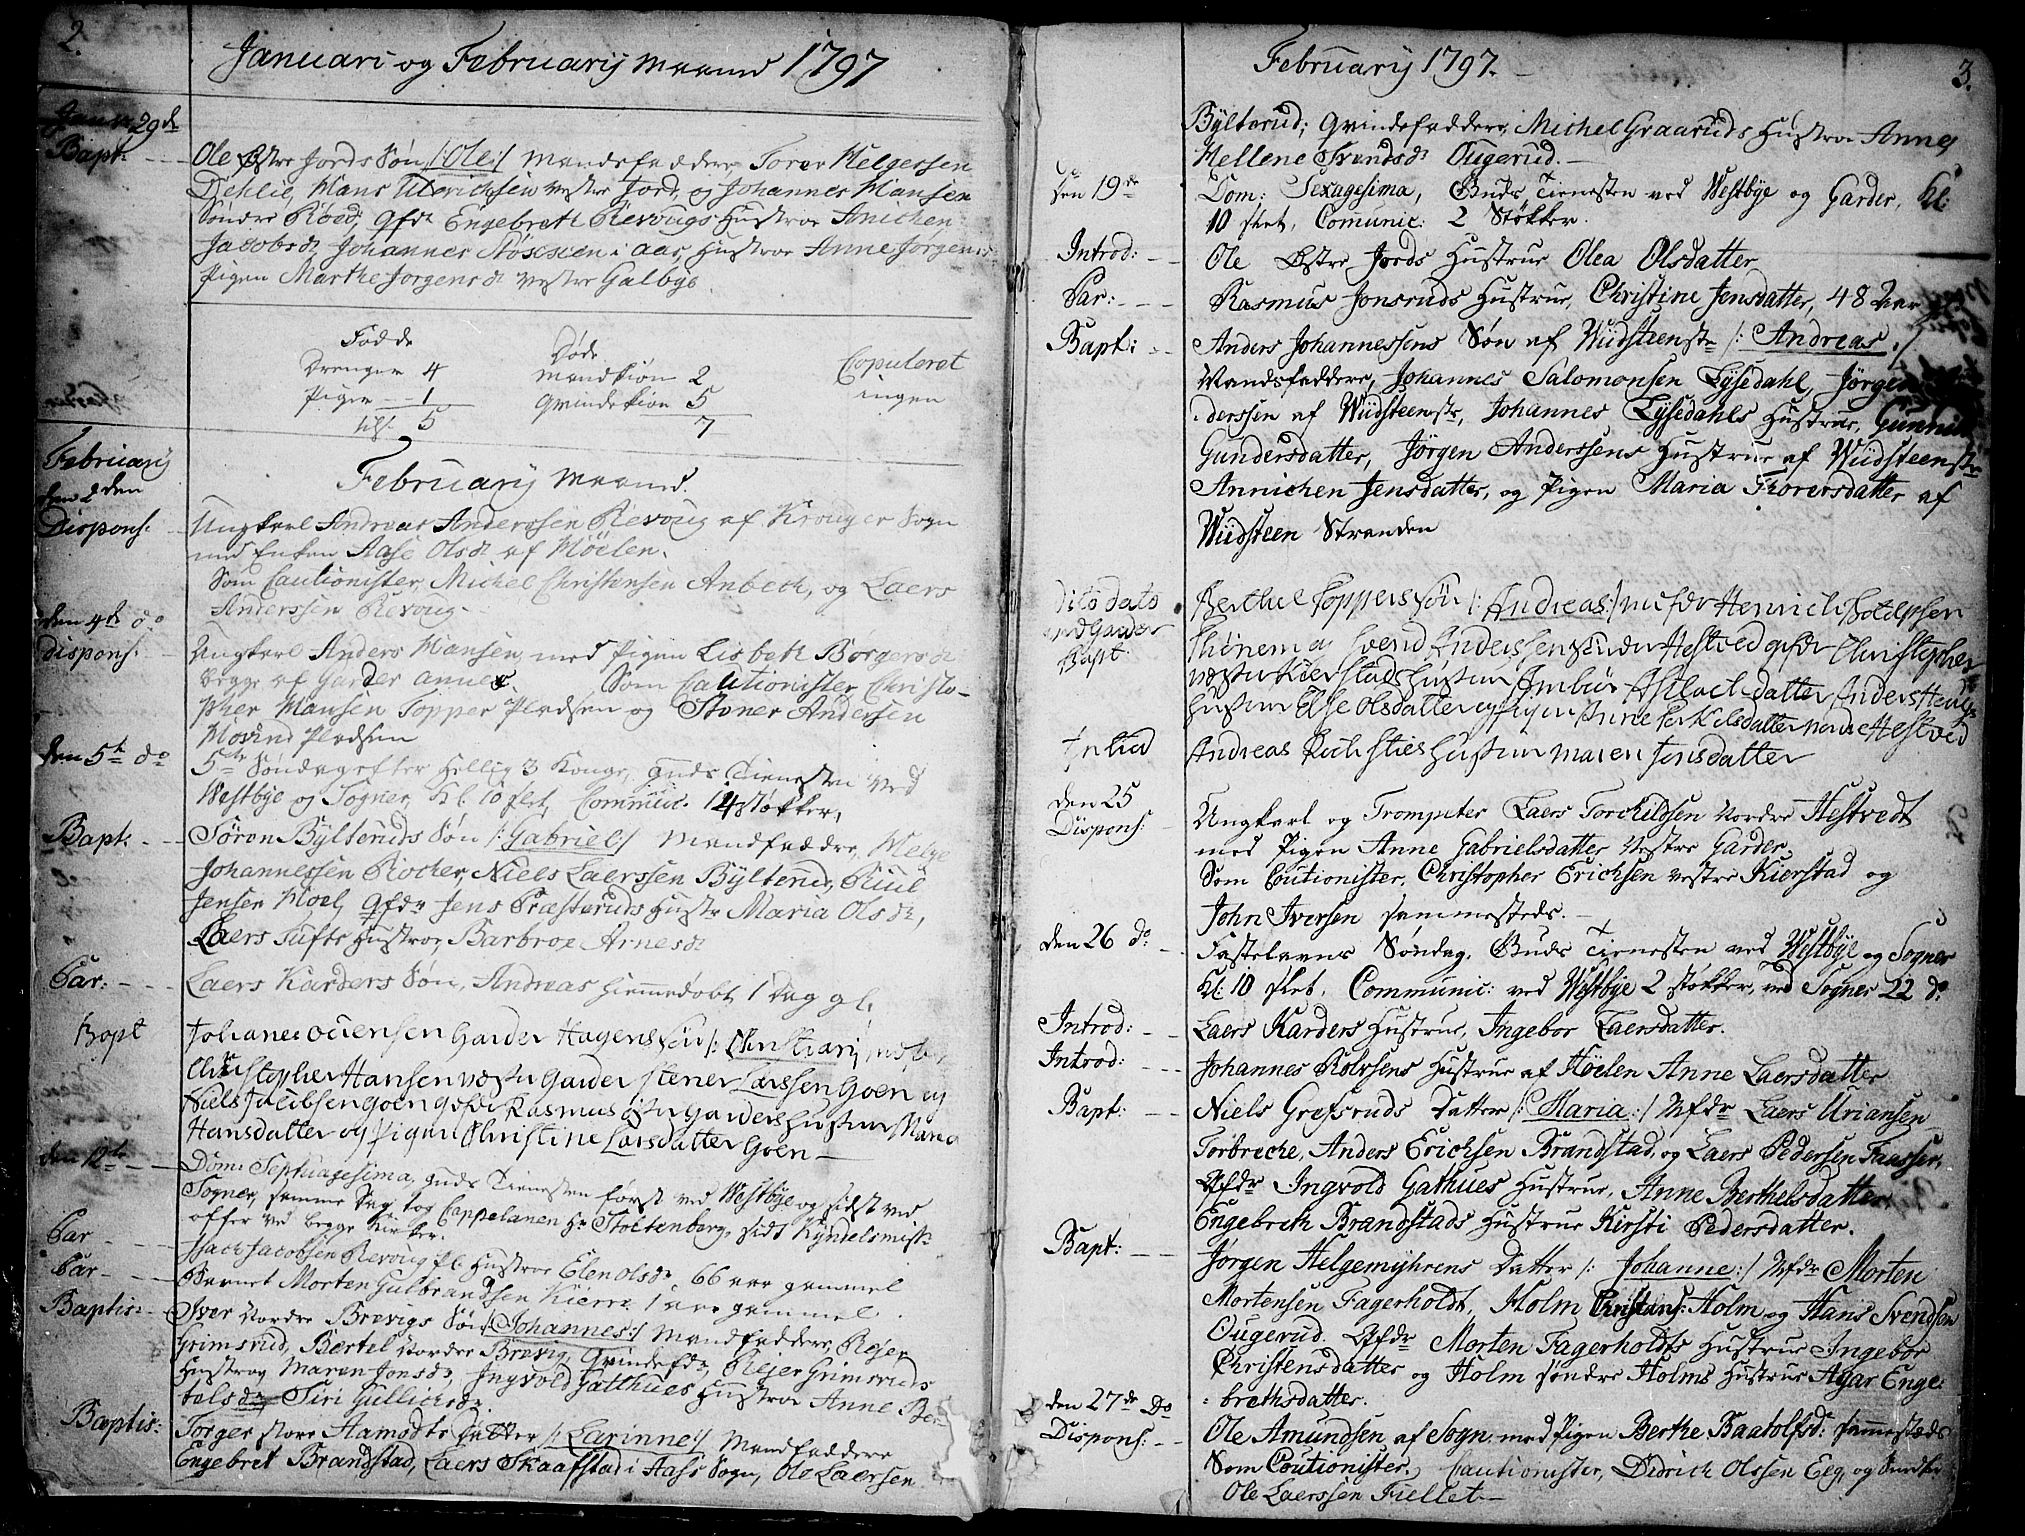 2.
Januari og Februarij Maaned 1797
Janu: 29de
Bapt:
Ole Østre Jords Søn /:Ole:/ Mandsfaddere Torer Helgessen
Dehlie, Hans Ulrichsen Vestre Jord, og Johannes Hansen
Søndre Röed; qfdr Engebreth Revougs Hustroe Anichen
Jacobsdr Johannes Hustroe Anne Jørgensdr
Pigen Marthe Jørgensdr Vestre Galbye.
Fødde
Drenger 4
Piger 1
5
Døde
Mandkiøn 2
Qvindekiøn 5
7
Copuleret
ingen
Februarij Maaned.
Februarij
den
Dispons:
Ungkarl Andreas Anderssen Revoug af Krouger Sogn
med Enken Aase Olsdr af Höelen.
Som Cautionister, Michel Christensen Anbech, og Laers
Anderssen Revoug.
den 4de do
dispons:
Ungkarl Anders Hansen, med Pigen Lisbeth Börgersdr
begge af Garder annex. Som Cautionister Christo-
pher Hansen Topper Pladsen og Stener Andersen
Hovind Pladsen
den 5te do
5te Søndag efter Hellig 3 Konge, Guds Tienesten ved
Westbye og Sogner, Kl. 10 slet, Commun. 14 støkker,
Bapt:
Søren Bÿlteruds Søn /:Gabriel:/ Mandfaddre, Helge
Johannessen Rocher, Niels Laerssen Bÿlterud,
Jensen Moel, Qfdr Jens Præsteruds Hustr Maria Olsdr,
Laers Tufts Hustroe, Barbroe Arnesdr
Laers Karders Søn, Andreas hiemmedøbt 1 dag gl.
Bapt
Garder Hagens Søn /:Christian:/
Christopher Hansen væster Garder Stener Larssen Goen og
Niels Jacobsen Goen Rasmus øster Garders Hustrue Maria
Hansdatter og Pigen Christine Larsdatter Goen
den 12te
Dom: Septuagesima, Guds Tienesten først ved Westbye og sidst ved
Sogner, samme dag tog Cappelanen Hr Stoltenberg, sidst Kyndelsmiss
offer ved begge Kirker.
Isach Jacobsen Revoug Hustroe Elen Olsdr, 66 aar gammel
Barnet Morten Gulbrandsen Kierre 1 aar gammel.
Baptis:
Iver Nordre Brevigs Søn /:Johannes:/ Mandfaddere, Rejer
Grimsrud, Bertel Nordre Brevig, Qvindefdr, Rejer Grimsruds
Hustroe Maren Jonsdr, Ingvold Gatthues Hustroe Anne Ber
telsdr Siri Gullichsdr.
Baptis:
Torger store Aamodts Datter /:Larinne:/ Mandfaddere
Engebret Brandstad, Laers Skaafstad i Aass Sogn, Ole Laersen
Februarij 1797.
3.
Bÿlterud; Qvindefaddere, Michel Graaruds Hustroe Anne
Hellene Svendsdr Ougerud.
den 19de
Dom: Sexagesima, Guds Tienesten ved Westbÿe og Garder, Kl:
10 slet, Comunic: 2 Støkker.
Introd:
Ole Østre Jords Hustrue Olea Olsdatter
Rasmus Jonsruds Hustrue, Christine Jensdatter, 48 Aar
Bapt:
Anders Johannessens Søn af Wiidsteenstr /:Andreas:/
Mandsfaddere, Johannes Salomonsen Lÿsedahl, Jørgen
derssen af Wiidsteenstr, Johannes Lÿsedahls Hustrue,
Gundersdatter, Jørgen Anderssens Hustrue af Wiidsteenstr
Annichen Jensdatter, og Pigen Maria Thorersdatter af
Wiidsteen Stranden
dito dato
ved Garder
Bapt.
Berthel Toppers Søn /:Andreas:/ Henrich
Svend Anderssen Hestved Christopher
Kierstads Hustrue Aslachsdatter Anders
Hustrue Else Olsdatter og Pigen Anne nordre Hestved
Andreas Hustrue Maren Jensdatter
den 25
Dispons:
Ungkarl og Trompeter Laers Torchildsen Nordre Hestvedt
med Pigen Anne Gabrielsdatter Vestre Garder.
Som Coutionister, Christopher Erichsen Vestre Kierstad og
John Iversen sammesteds.
den 26 do.
Fastelavns Søndag, Guds Tienesten ved Westbÿe og Sogner
Kl: 10 slet. Communic: ved Westbÿe 2 støkker, ved Sogner 22 do.
Introd:
Laers Karders Hustrue, Ingebor Laersdatter.
Introd:
Johannes Rolvsens Hustrue af Höelen Anne Laersdatter
Bapt:
Niels Grefsruds Datter /:Maria:/ Mfdr Laers Uriansen
Torbreche, Anders Erichsen Brandstad, og Laers Pedersen Faasser,
Qfdr Ingvold Gathues Hustrue, Anne Berthelsdatter
Engebreth Brandstads Hustrue Kirsti Pedersdatter.
Bapt:
Jørgen Helgemÿhrens Datter /:Johanne:/ Mfdr Morten
Mortensen Fagerholdt, Holm Christens: Holm og Hans Svendsen
Ougerud. Qfdr Morten Fagerholdts Hustrue Ingebor
Christensdatter og Holm søndre Holms Hustrue Agar Enge:
brethsdatter.
den 27de Do
Dispons:
Ole Amundsen af Sogn. med Pigen Berthe Baatolfsd: sammestæds
Som Coutionister, Cautionister, Didrich Olssen Elg, og
Ole Laerssen Fiellet